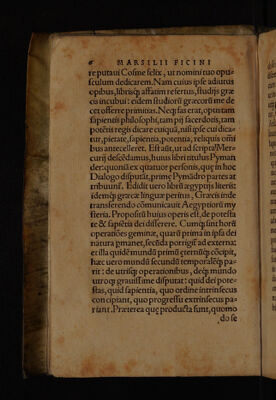 6 MARSILII FICINI
re putaui Cosme felix, ut nomini tuo opu-
sculum dedicarem. Nam cuius ipse adiutus
opibus, librisq́; affatim refertus, studijs græ
cis incubui: eidem studiorũ græcorũ me de
cet offerre primitias. Neq; fas erat, opus tam
sapientis philosophi, tam pij sacerdotis, tam
potẽtis regis dicare cuiquã, nisi ipse cui dica-
tur, pietate, sapientia, potentia, reliquis omni
bus antecelleret. Est aũt, ut ad scripta Mer-
curij descẽdamus, huius libri titulus Pyman
der: quoniã ex q̃tuor personis, quę in hoc
Dialogo disputãt, prime Pymãdro partes at
tribuunt᷑. Edidit uero librũ ægyptijs literis:
idemq́; græcæ linguæ peritus, Græcis inde
transferendo cõmunicauit Aegyptiorũ my
steria. Propositũ huius operis est, de potesta
te & sapiẽtia dei disserere. Cumq́; sint horũ
operatiões geminæ, quarũ prima in ipsa dei
natura ꝑmanet, secũda porrigit᷑ ad externa:
et illa quidẽ mundũ primũ ęternũq́; cõcipit,
hæc uero mundũ secundũ temporalẽq́; pa-
rit: de utrisq; operationibus, deq́; mundo
utroq; grauissime disputat: quid dei pote-
stas, quid sapientia, quo ordine intrinsecus
concipiant, quo progressu extrinsecus pa-
riant. Præterea quę producta sunt, quomo
do se